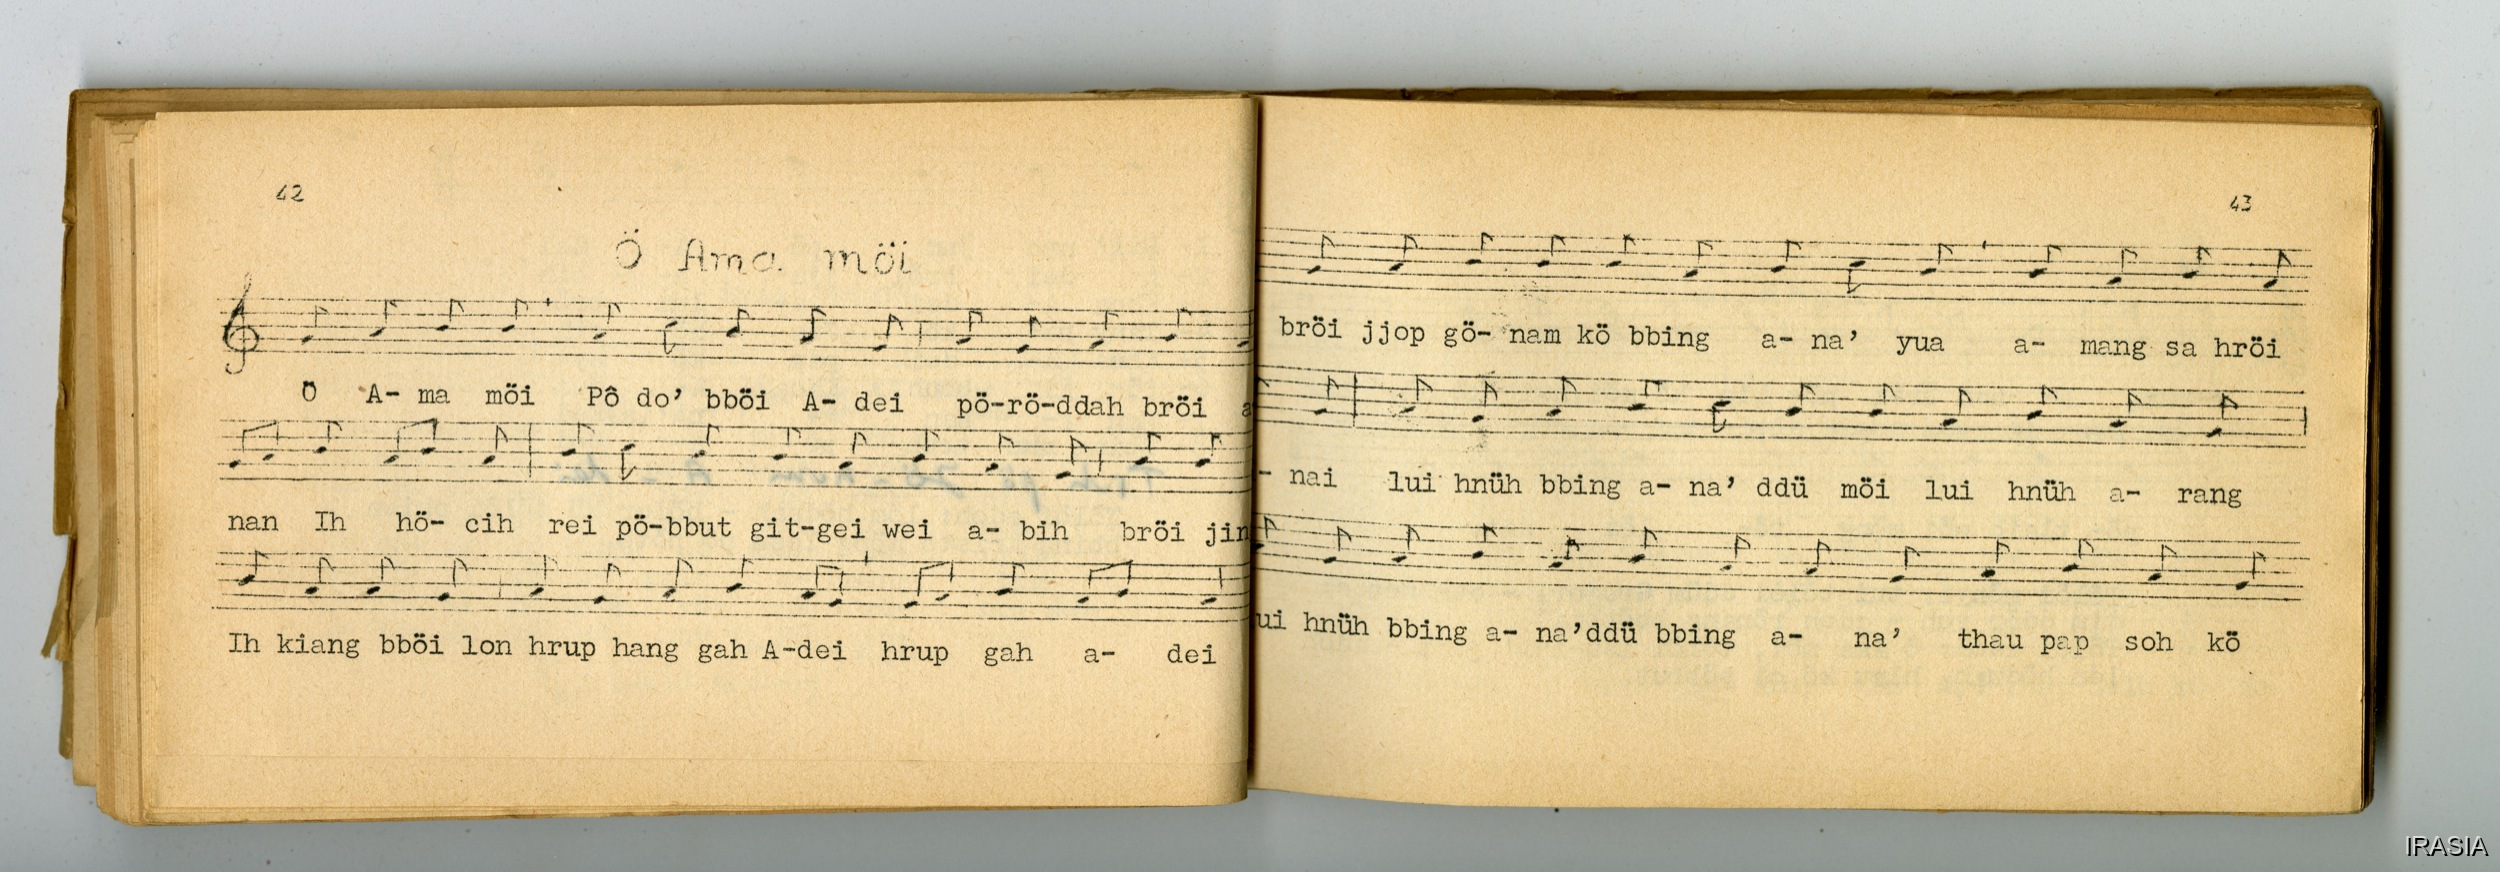 42
Ö Ama möi
Ö A- ma möi Pô do’ bböi A- dei pö-rö-ddah bröi a
nan Ih hö- cih rei pö-bbut git-gei wei a- bih bröi jin
Ih kiang bböi lon hrup hang gah A-dei hrup gah a- dei
43
bröi jjop gö- nam kö bbing a- na’ yua a- mang sa hröi
- nai lui hnüh bbing a- na’ ddü möi lui hnüh a- rang
ui hnüh bbing a- na’ddü bbing a- na’ thau pap soh kö
IRASIA